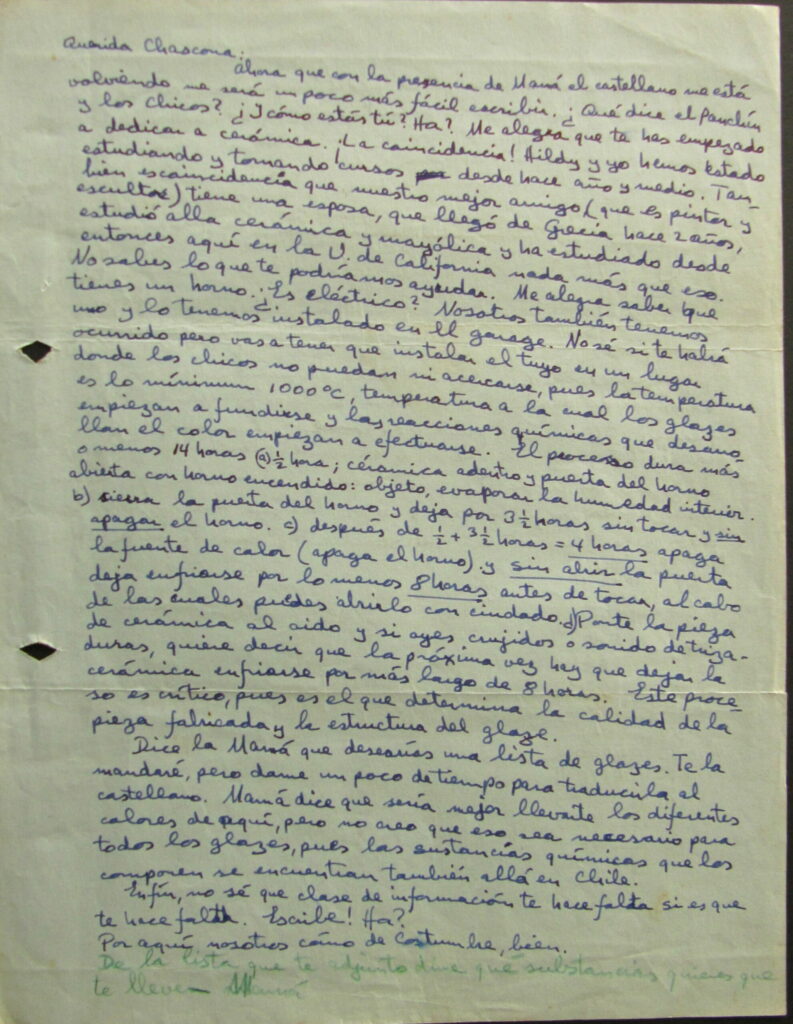 Querida Chascona:
Ahora que con la presencia de Mamá el castellano me está
volviendo me será un poco más fácil escribir. ¿Qué dice el Panchín
y los chicos? ¿Y cómo estás tú? Ha? Me alegra que te has empezado
a dedicar a cerámica. ¡La coincidencia! Hildy y yo hemos estado
estudiando y tomando cursos desde hace año y medio. Tam-
bién es coincidencia que nuestro mejor amigo (que es pintor y
escultor) tiene una esposa, que llegó de Grecia hace 2 años,
estudió alla cerámica y mayólica y ha estudiado desde
entonces aquí en la U. de California nada más que eso.
No sabes lo que te podríamos ayudar. Me alegra saber que
tienes un horno. ¿Es eléctrico? Nosotros también tenemos
uno y lo tenemos instalado en el garage. No sé si te habrá
ocurrido pero vas a tener que instalar el tuyo en un lugar
donde los chicos no puedan ni acercarse, pues la temperatura
es lo mínimum 1000°C, temperatura a la cual los glazes
empiezan a fundirse y las reacciones químicas que desarro-
llan el color empiezan a efectuarse. El proceso dura más
o menos 14 horas (a) ½ hora; cerámica adentro y puerta del horno
abierta con horno encendido: objeto, evaporar la humedad interior.
b) sierra la puerta del horno y deja por 3½ horas sin tocar y sin
apagar el horno. c) después de ½ + 3½ horas = 4 horas apaga
la fuente de calor (apaga el horno) y sin abrir la puerta
deja enfriarse por lo menos 8 horas antes de tocar, al cabo
de las cuales puedes abrirlo con cuidado. d) Ponte la pieza
de cerámica al oido y si oyes crujidos o sonido de triza-
duras, quiere decir que la próxima vez hay que dejar la
cerámica enfriarse por más largo de 8 horas. Este proce-
so es crítico, pues es el que determina la calidad de la
pieza fabricada y la estructura del glaze.
Dice la Mamá que desearías una lista de glazes. Te la
mandaré, pero dame un poco de tiempo para traducirla al
castellano. Mamá dice que sería mejor llevarte los diferentes
colores de aquí, pero no creo que eso sea necesario para
todos los glazes, pues las sustancias químicas que los
componen se encuentran también allá en Chile.
Enfín, no sé que clase de información te hace falta si es que
te hace falta. Escribe! Ha?
Por aquí, nosotros cómo de costumbre, bien.
De la lista que te adjunto dime qué substancias quieres que
te lleve — Mamá